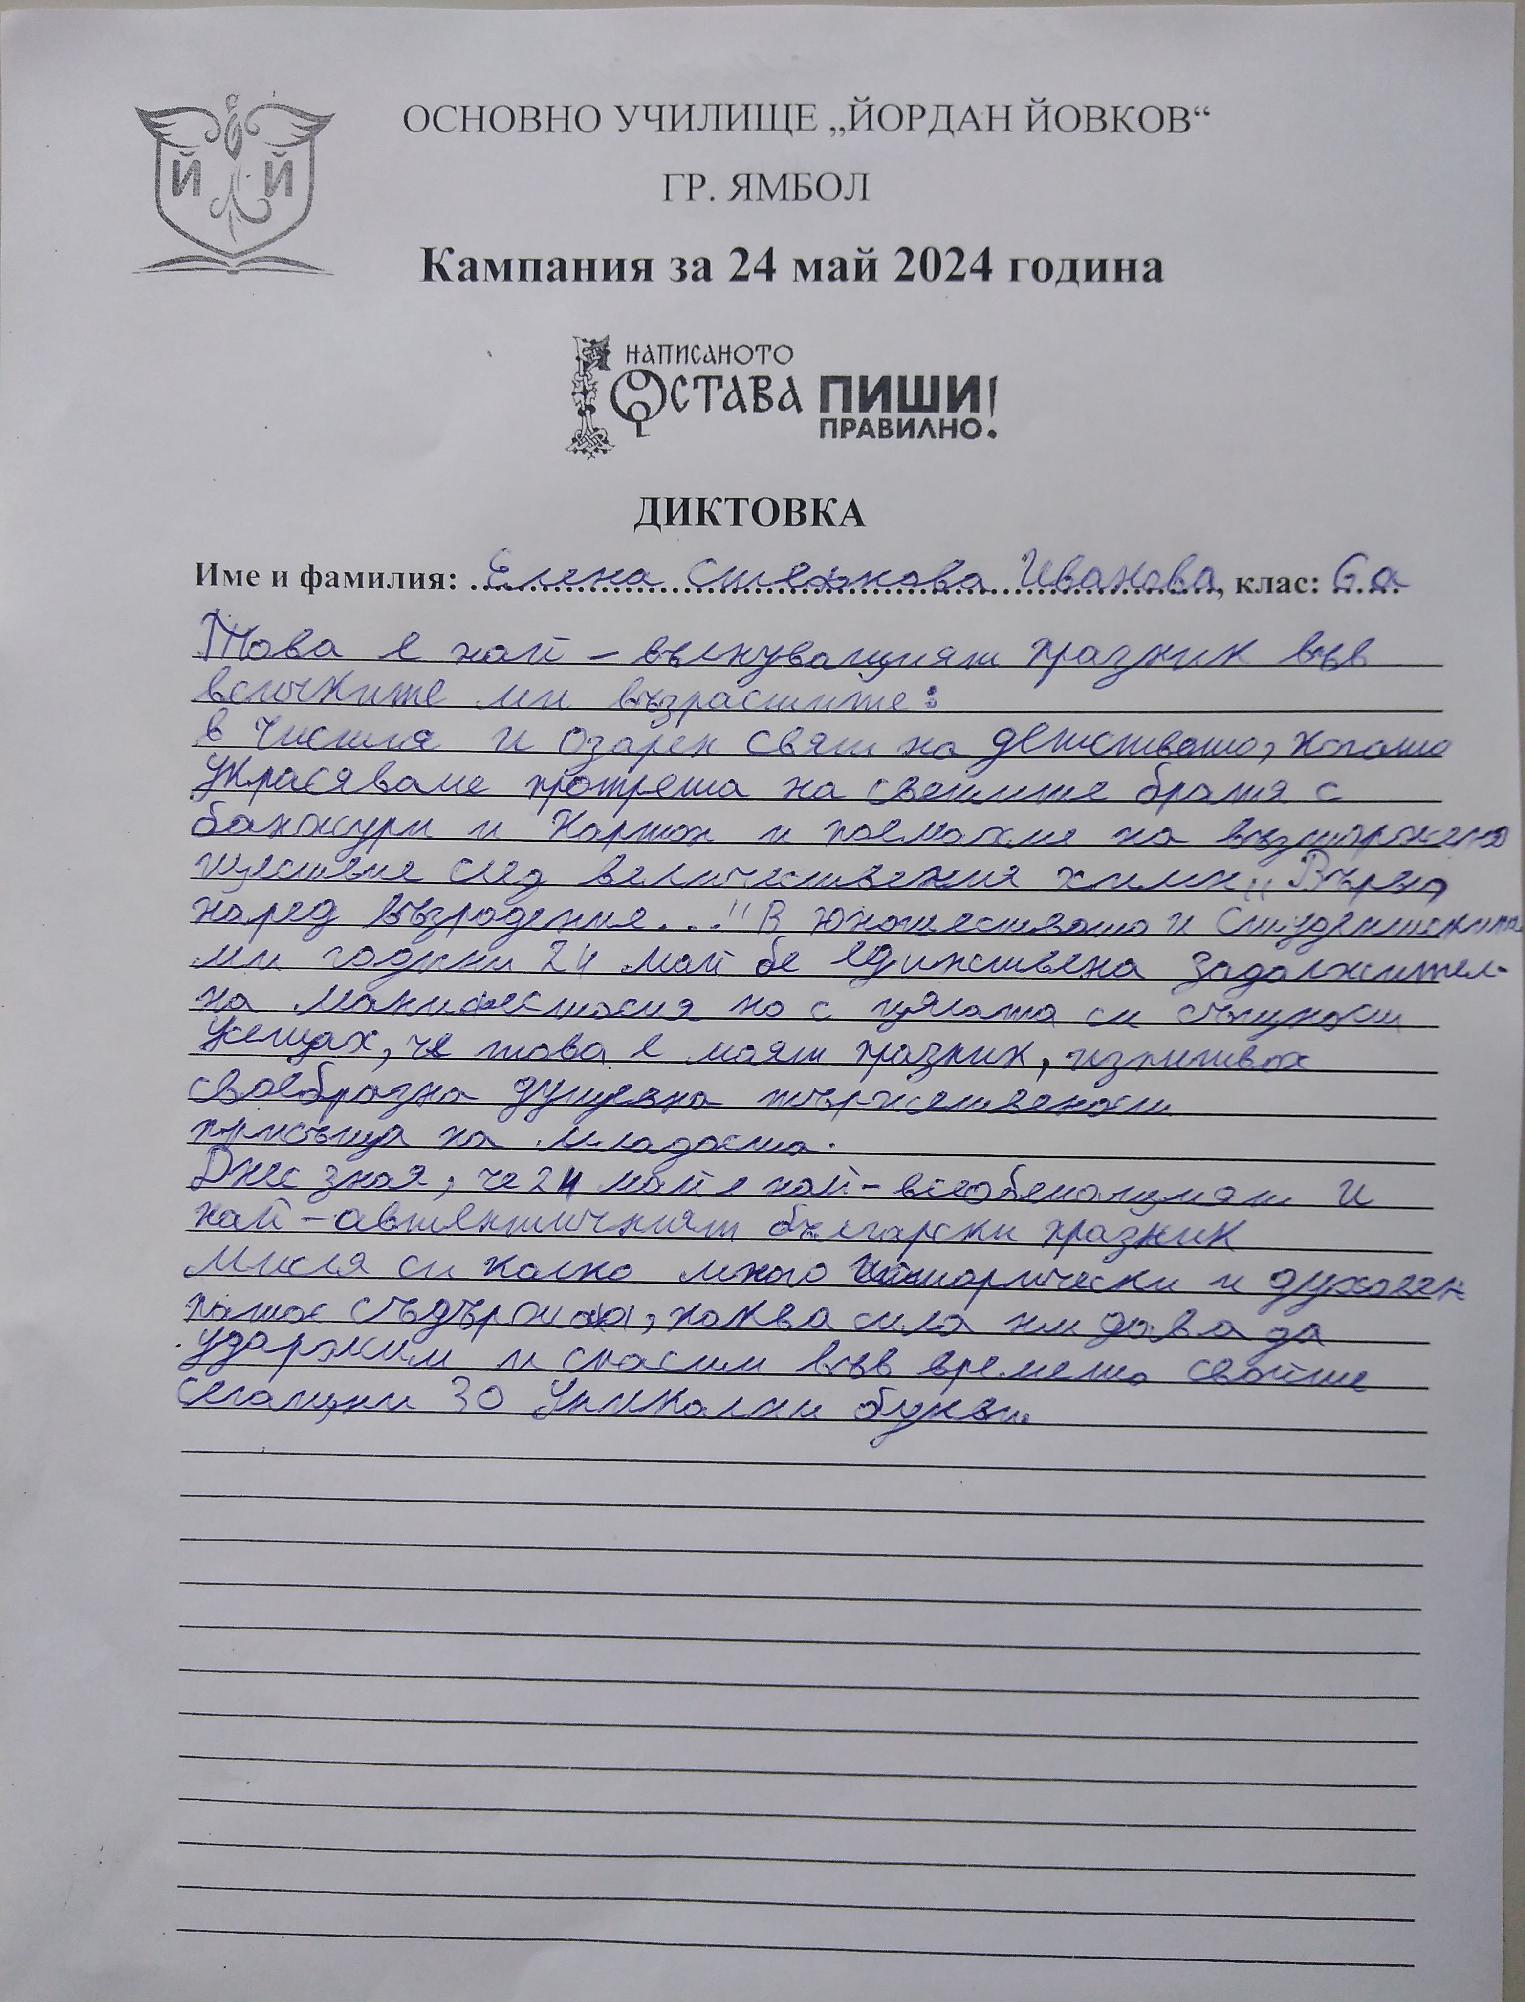 Й Й
ОСНОВНО УЧИЛИЩЕ „ЙОРДАН ЙОВКОВ“
ГР. ЯМБОЛ
Кампания за 24 май 2024 година
НАПИСАНОТО
ОСТАВА ПИШИ
ПРАВИЛНО!
ДИКТОВКА
Име и фамилия: Елена Стоянова Иванова, клас: 6.а
Това е най - вълнуващият празник във
всичките ми възрастите:
в чистия и озарен свят на детството, когато
украсяваме портрета на светите братя с
банжури и Картон и поемахме на възторжено
шествие след величествения химн „Върви
народ възродение..." В юношеството и Студентските
ми години 24 май бе единствена задалжител-
на манифестосия но с цялата си същност
усещах, че това е моят празник, изпитвах
своебразна душевна тържественост
присъща на младостта.
Днес зная, че 24 май е най-всеобемащият и
най-автентичният български празник
мисля си колко много исторически и духовен
патос съдържа, каква сила ни дава да
удържим и спасим във времето своите
сегашни 30 уникални букви.